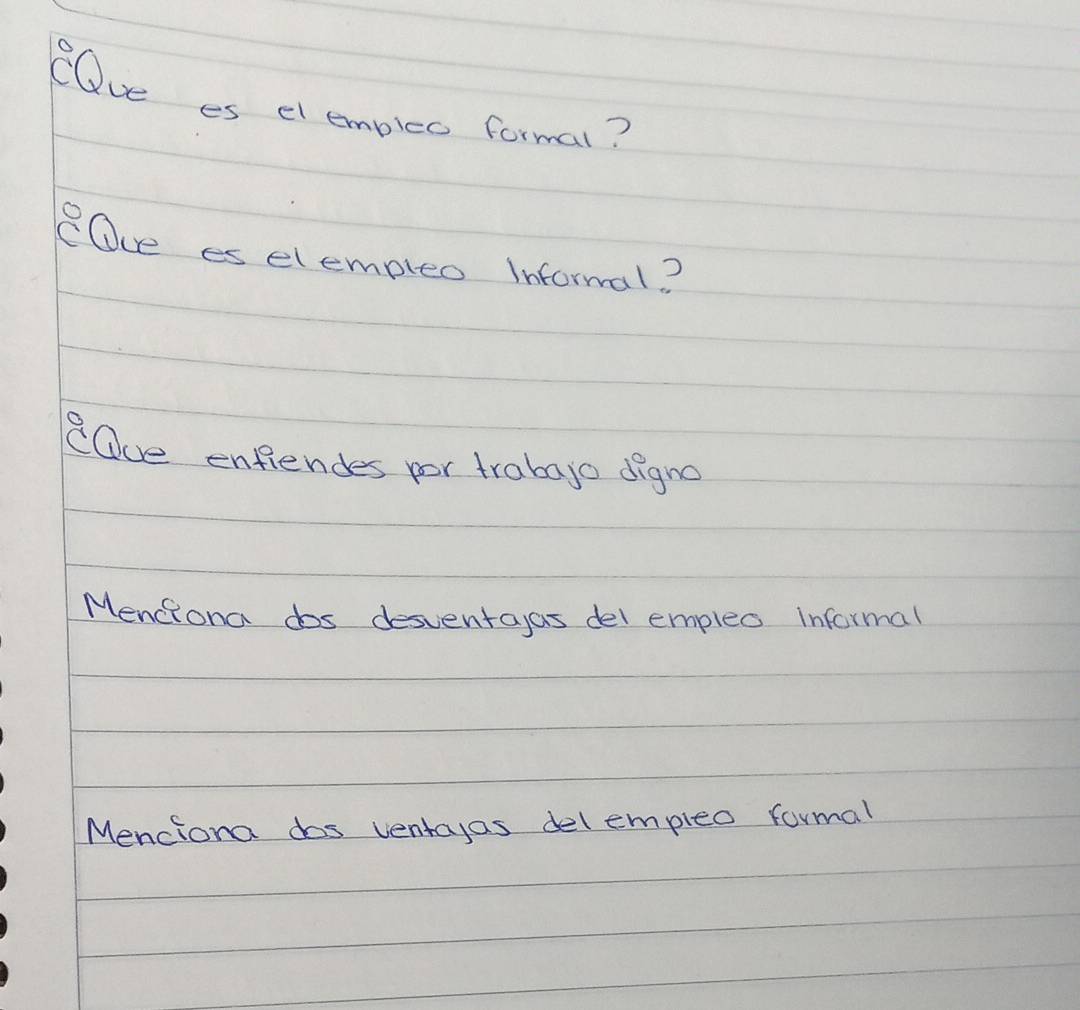 ¿Que es el empleo formal?
¿Que es el empleo Informal?
¿Que entiendes por trabajo digno
Menciona dos desventajas del empleo informal
Menciona dos ventajas del empleo formal